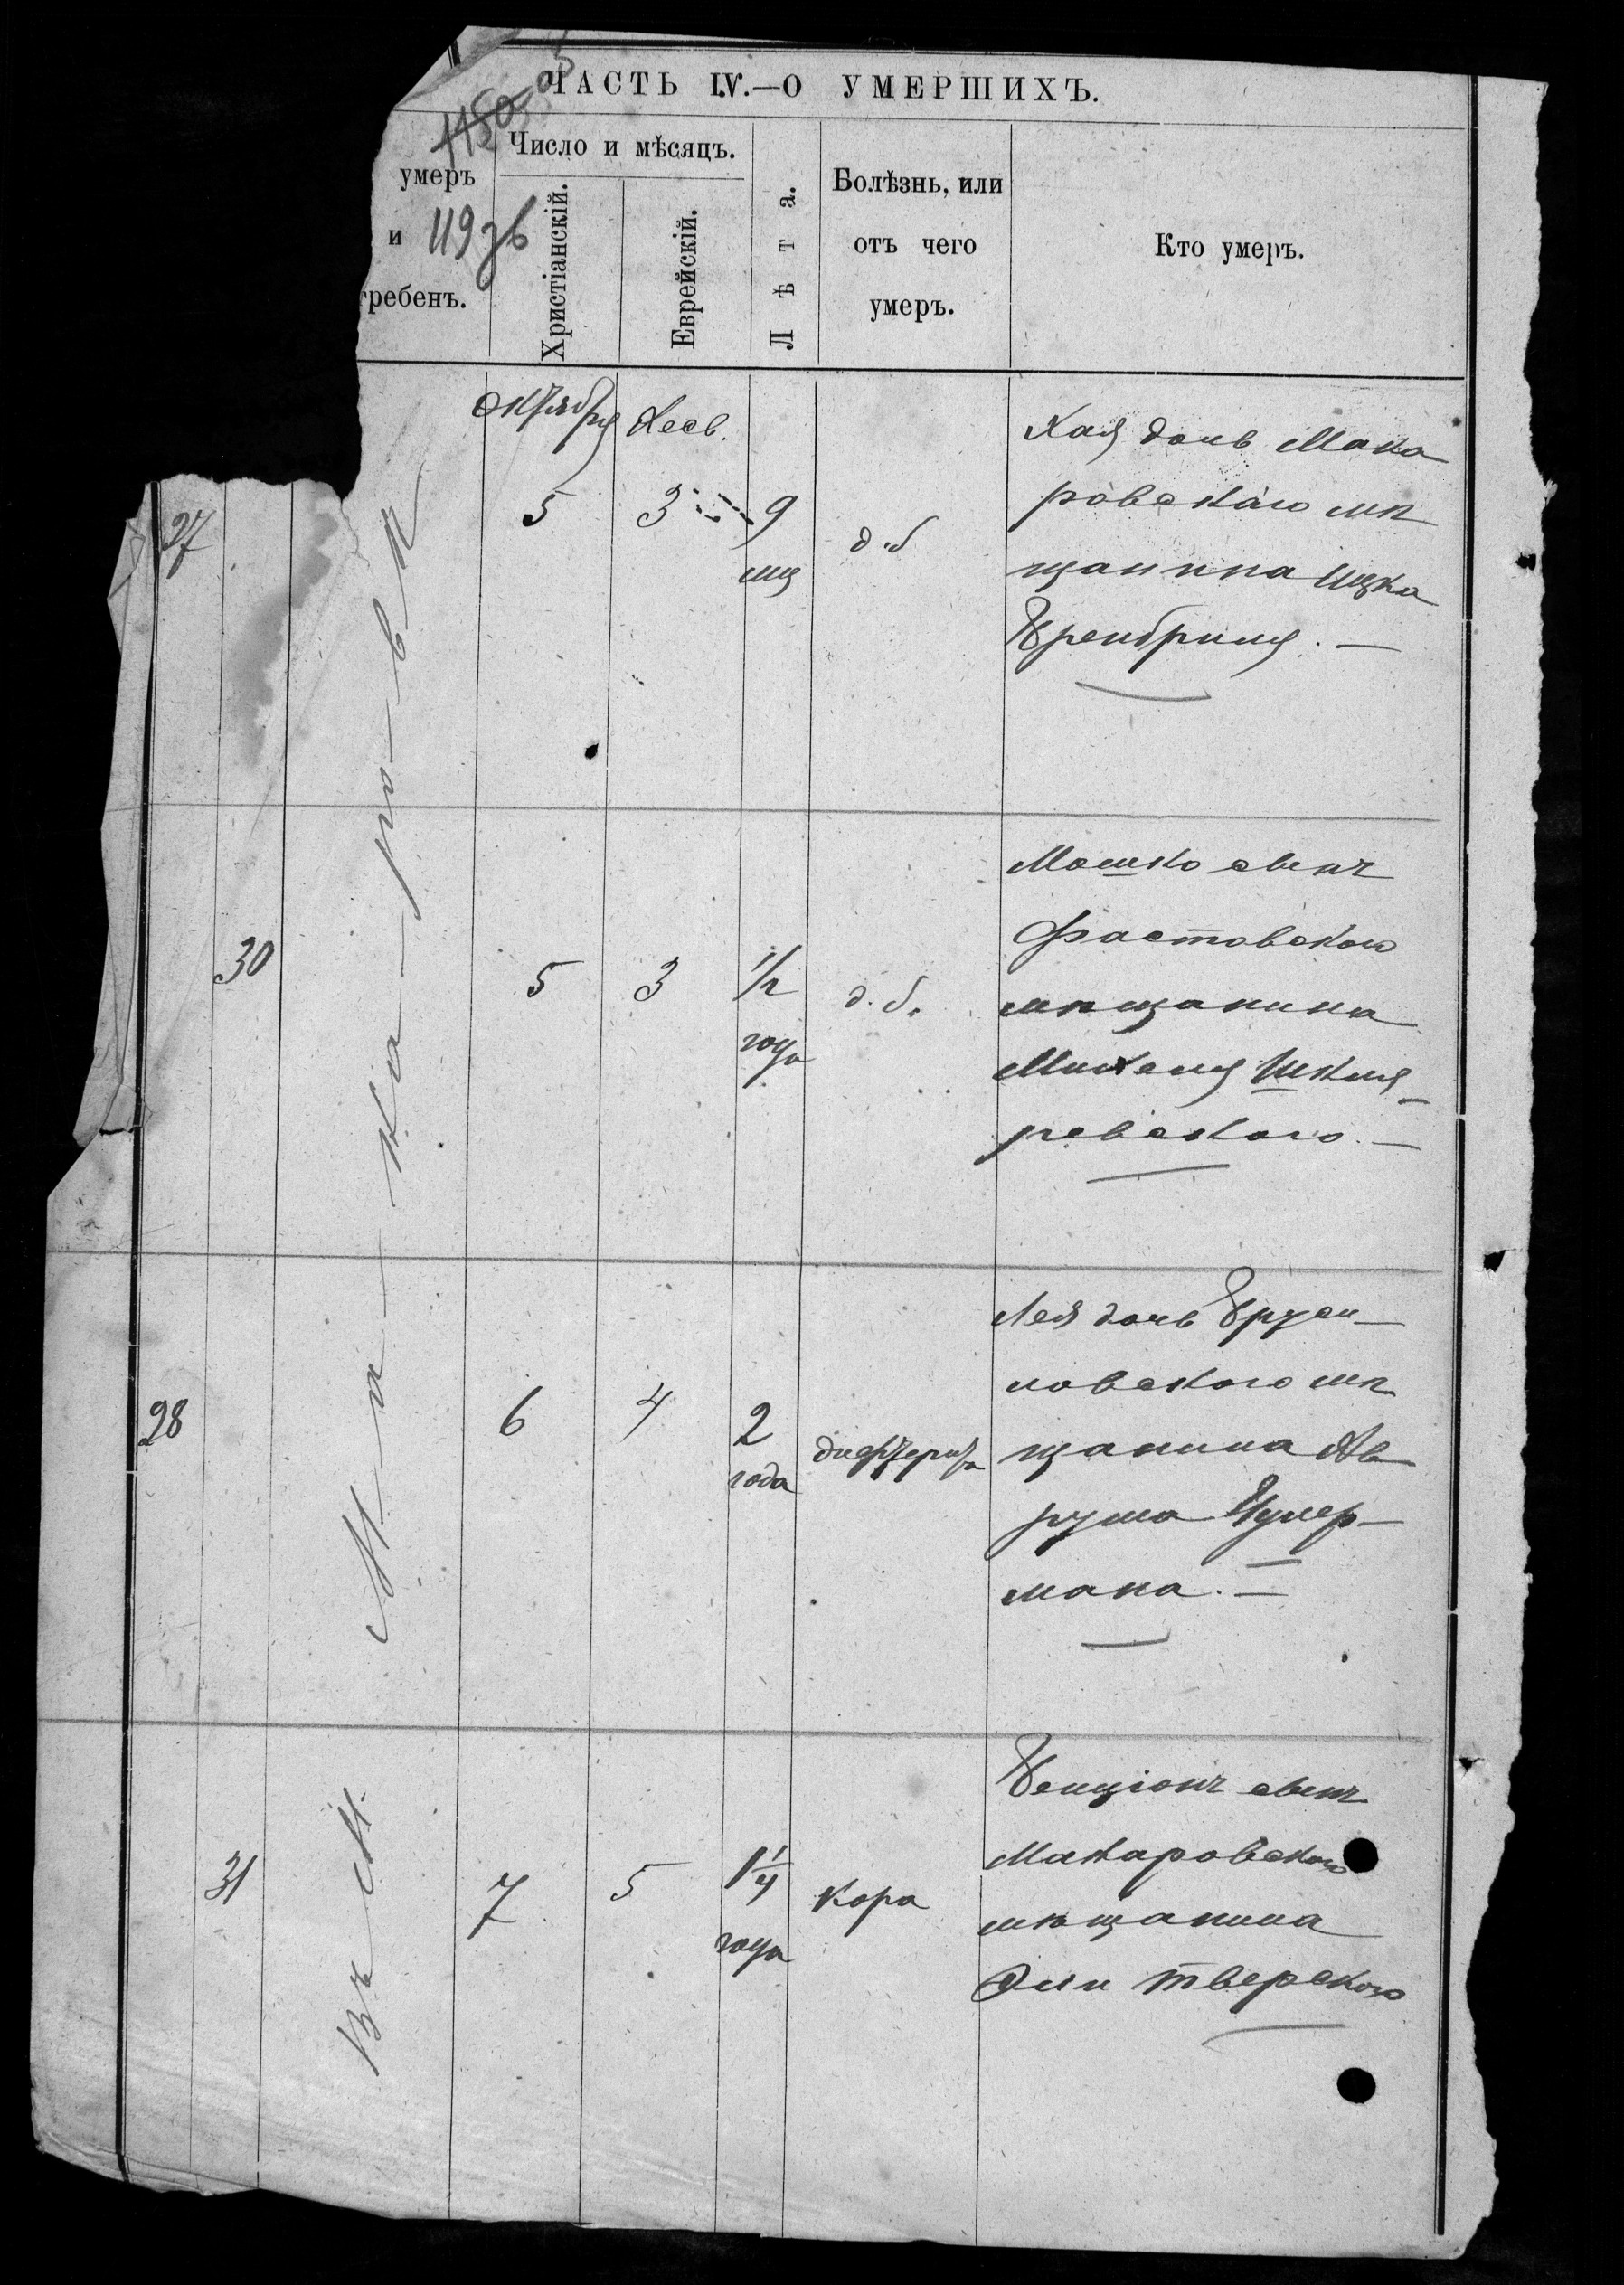 ЧАСТЬ IV.—О УМЕРШИХЪ.
1150
умеръ
и
гребенъ.
119 зв
Число и мѣсяцъ.
Христіанскій.
Еврейскій.
Лѣта.
Болѣзнь, или
отъ чего
умеръ.
Кто умеръ.
Въ М. Макаровѣ
27
октября
5
Хесв.
3
9
мц
д.б
Хая дочь Мака
ровскаго мѣ
щанина Ицка
30
5
3
1/2
года
д.б.
Мошко сынъ
Фастовскаго
мѣщанина
Михеля Шкля-
ревскаго.—
28
6
4
2
года
дифтерита
Лея дочь Бруси-
ловскаго мѣ
щанина Ав
рума Цукер-
мана.—
31
7
5
1 1/4
года
Кора
Бенціонъ сынъ
Макаровскаго
мѣщанина
Эли Тверскаго